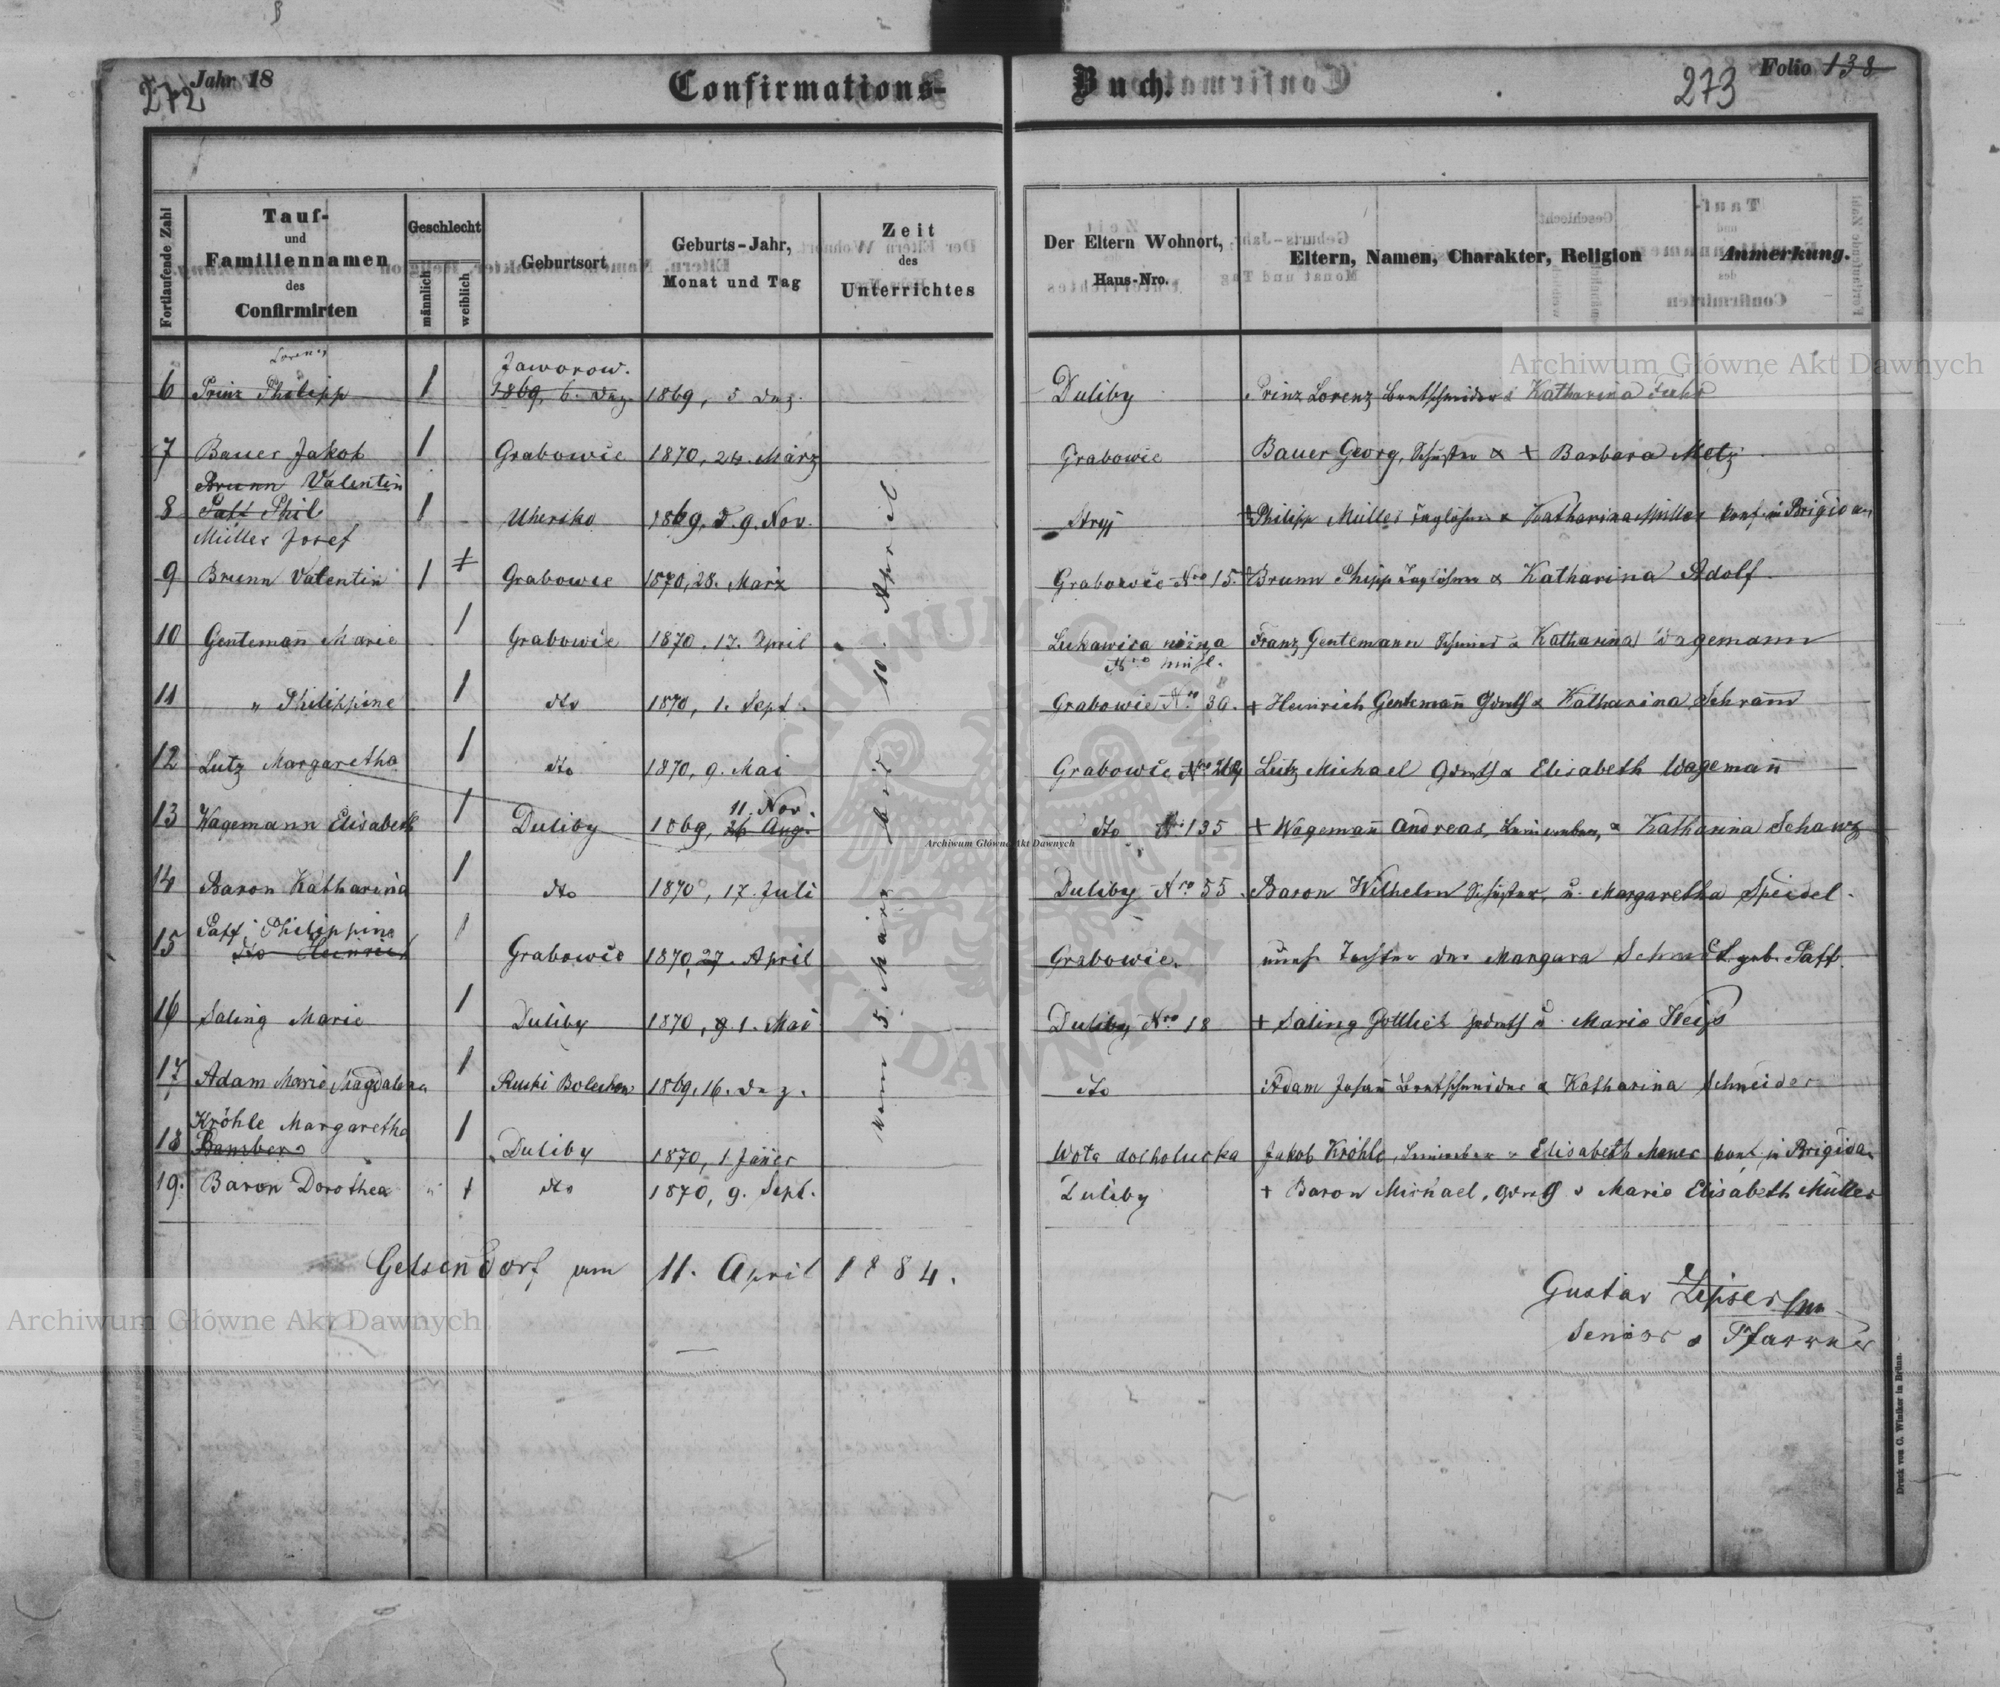 272 Jahr 18 Confirmations-
Buch. 273 Folio 138
Fortlaufende Zahl
Tauf- und Familiennamen des Confirmirten
Geschlecht
männlich
weiblich
Geburtsort
Geburts-Jahr, Monat und Tag
Zeit des Unterrichtes
Der Eltern Wohnort, Haus-Nro.
Eltern, Namen, Charakter, Religion
Anmerkung.
Lorenz
Jaworow.
6 Prinz Philipp 1 1869, 6. Dez. 1869, 5 Dez. Duliby Prinz Lorenz Brettschneider & Katharina Fuhr
7 Bauer Jakob 1 Grabowie 1870, 24. März Grabowie Bauer Georg, Schuster & + Barbara Metz
Brunn Valentin
8 Paff Phil 1 Uhersko 1869, d. 9. Nov. Stryj Philipp Müller Taglöhner & Katharina Müller konf. in Brigidau
Müller Josef
9 Brunn Valentin 1 Grabowie 1870, 28. März Grabowie Nro 15. Brunn Phipp Taglöhner & Katharina Adolf
10 Gentemañ Marie 1 Grabowie 1870, 13. April Lukawica nižna Franz Gentemann Schmied & Katharina Wagemann
11 " Philippine 1 dto 1870, 1. Sept. Grabowie Nro 30. + Heinrich Gentemañ Grundb & Katharina Schram̄
12 Lutz Margaretha 1 dto 1870, 9. Mai Grabowie Lutz Michael Grundb & Elisabeth Wagemañ
11. Nov.
13 Wagemann Elisabeth 1 Duliby 1869, 26 Aug. dto 135 + Wagemañ Andreas, & Katharina Schawz
14 Baron Katharina 1 dto 1870, 17. Juli Duliby Nro 55 Baron Wilhelm Schuster, u. Margaretha Speidel.
Paff, Philippine
15 dto Heinrich 1 Grabowie 1870, 27. April Grabowie. uneh. Tochter der Margara geb. Paff.
16 Saling Marie 1 Duliby 1870, 1. Mai Duliby Nro 18 + Saling Gottlieb Grundb u. Marie Weiß
17 Adam Marie Magdalena 1 Ruski Bolechow 1869, 16. Dez. dto Adam Johañ Brettschneider & Katharina Schneider
Kröhle Margaretha
18 Bamberg 1 Duliby 1870, 1. Jäñer Wola dolholucka Jakob Kröhle, & Elisabeth konf. in Brigidau
19. Baron Dorothea " + dto 1870, 9. Sept. Duliby + Baron Michael, Grundb & Marie Elisabeth Müller
Vom 5. März bis 10. April
Gelsendorf am 11. April 1884.
Gustav Zipser
Senior & Pfarrer
Druck von C. Winiker in Brünn.
Archiwum Główne Akt Dawnych
Archiwum Główne Akt Dawnych
Archiwum Główne Akt Dawnych
ARCHIWUM GŁÓWNE AKT DAWNYCH